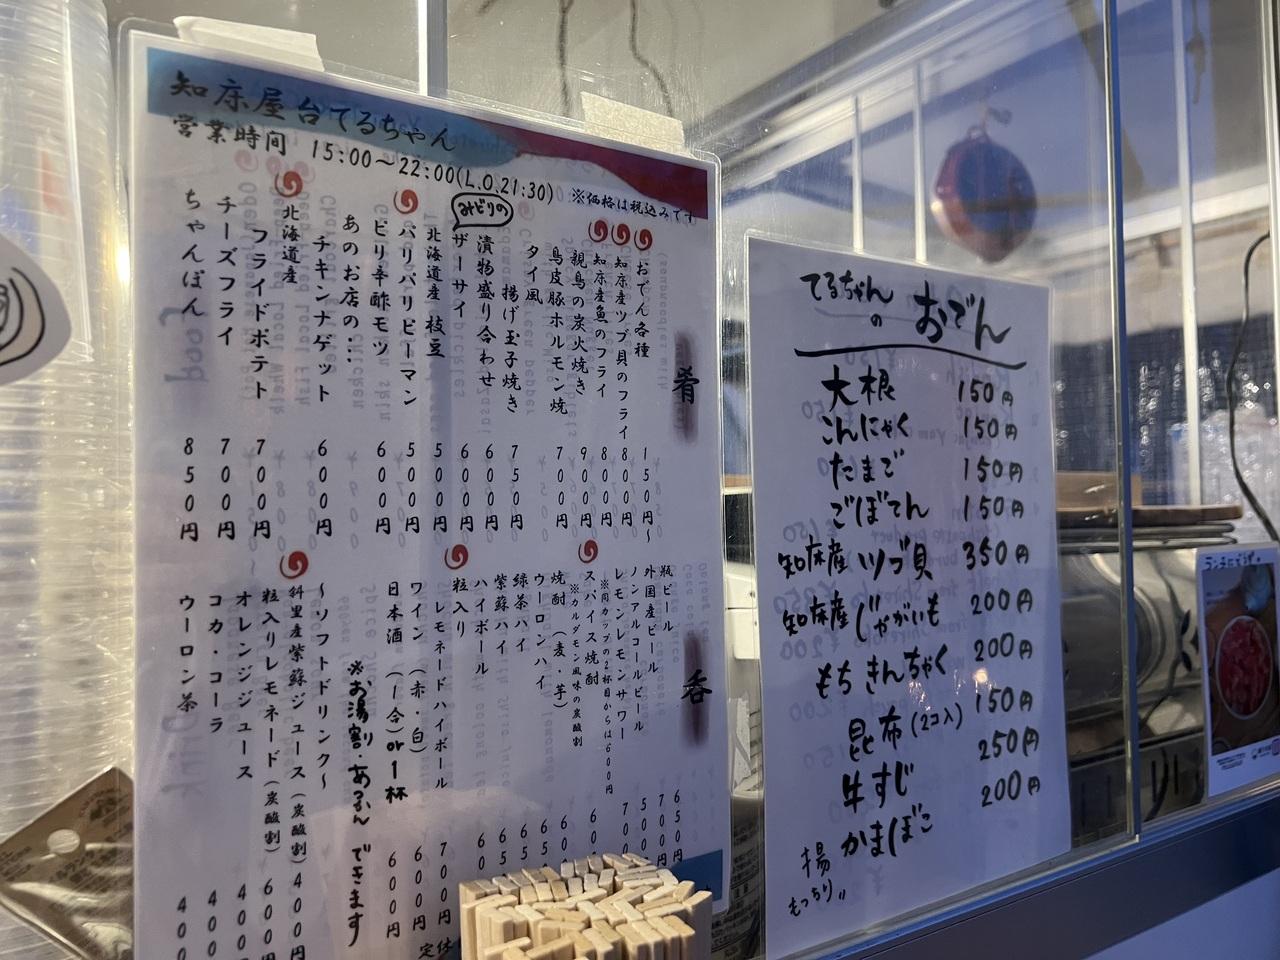 知床屋台てるちゃん
営業時間 15:00〜22:00(L.O.21:30)
※価格は税込みです
肴
おでん各種 150円〜
知床産ツブ貝のフライ 800円
知床産魚のフライ 800円
親鳥の炭火焼き 900円
鳥皮豚ホルモン焼 700円
タイ風
揚げ玉子焼き 750円
漬物盛り合わせ 600円
みどりの
ザーサイ 600円
北海道産枝豆 500円
パリパリピーマン 500円
ピリ辛酢モツ 600円
あのお店の…
チキンナゲット 600円
北海道産
フライドポテト 700円
チーズフライ 700円
ちゃんぽん 850円
呑
瓶ビール 650円
外国産ビール 700円
ノンアルコールビール
レモンレモンサワー
※同カップの2杯目からは600円
スパイス焼酎
※カルダモン風味の炭酸割
焼酎(麦・芋)
ウーロンハイ
緑茶ハイ
紫蘇ハイ
ハイボール
粒入り
レモネードハイボール 700円
ワイン(赤・白) 600円
日本酒(1合)or1杯 600円
※お湯割・あるみん できます
〜ソフトドリンク〜
斜里産紫蘇ジュース(炭酸割) 400円
粒入りレモネード(炭酸割) 600円
オレンジジュース 400
コカ・コーラ 400
ウーロン茶 400
定休
てるちゃんの おでん
大根 150円
こんにゃく 150円
たまご 150円
ごぼてん 150円
知床産 ツブ貝 350円
知床産 じゃがいも 200円
もちきんちゃく 200円
昆布(2コ入) 150円
牛すじ 250円
揚かまぼこ 200円
もっちり〃